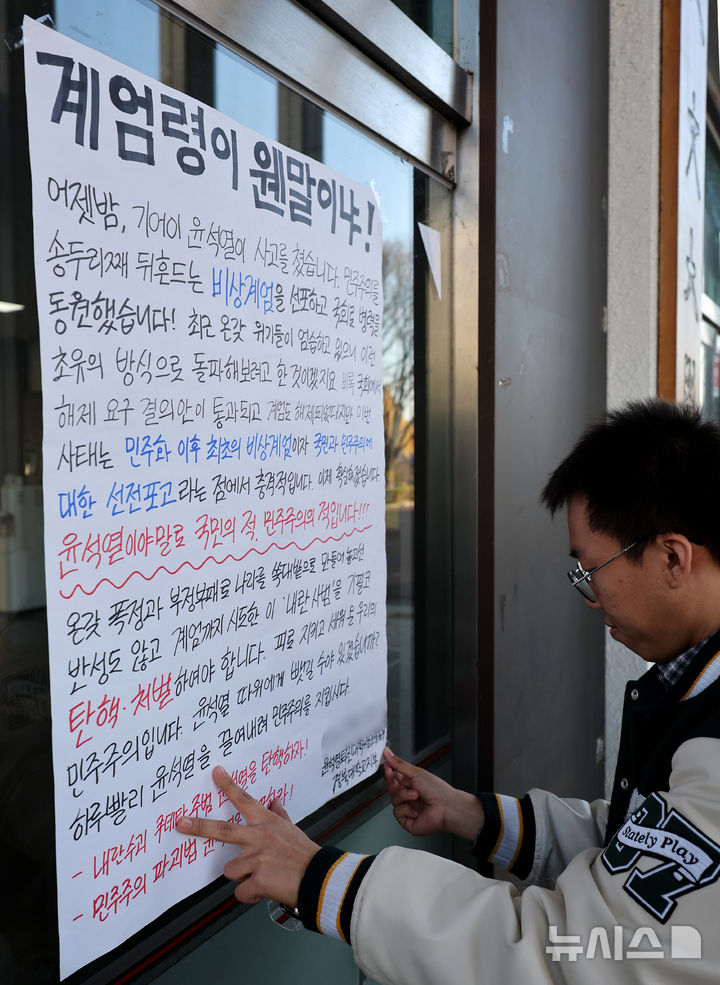 계엄령이 웬말이냐!
어젯밤, 기어이 윤석열이 사고를 쳤습니다. 민주주의를
송두리째 뒤흔드는 비상계엄을 선포하고 국회로 병력을
동원했습니다! 최근 온갖 위기들이 엄습하고 있으니 이런
초유의 방식으로 돌파해보려고 한 것이겠지요. 비록 국회에서
해제 요구 결의안이 통과되고 계엄도 해제되었다지만 이번
사태는 민주화 이후 최초의 비상계엄이자 국민과 민주주의에
대한 선전포고라는 점에서 충격적입니다. 이제 확실해졌습니다.
윤석열이야말로 국민의 적, 민주주의의 적입니다!!!
온갖 폭정과 부정부패로 나라를 쑥대밭으로 만들어 놓고선
반성도 않고 계엄까지 시도한 이 '내란 사범'을 기필코
탄핵·처벌하여야 합니다. 피로 지키고 세워온 우리의
민주주의입니다. 윤석열 따위에게 빼앗길 수야 있겠습니까?
하루빨리 윤석열을 끌어내려 민주주의를 지킵시다.
- 내란수괴 윤석열을 탄핵하자!
- 민주주의 파괴범
경북대학교지부
Stately Play
뉴시스